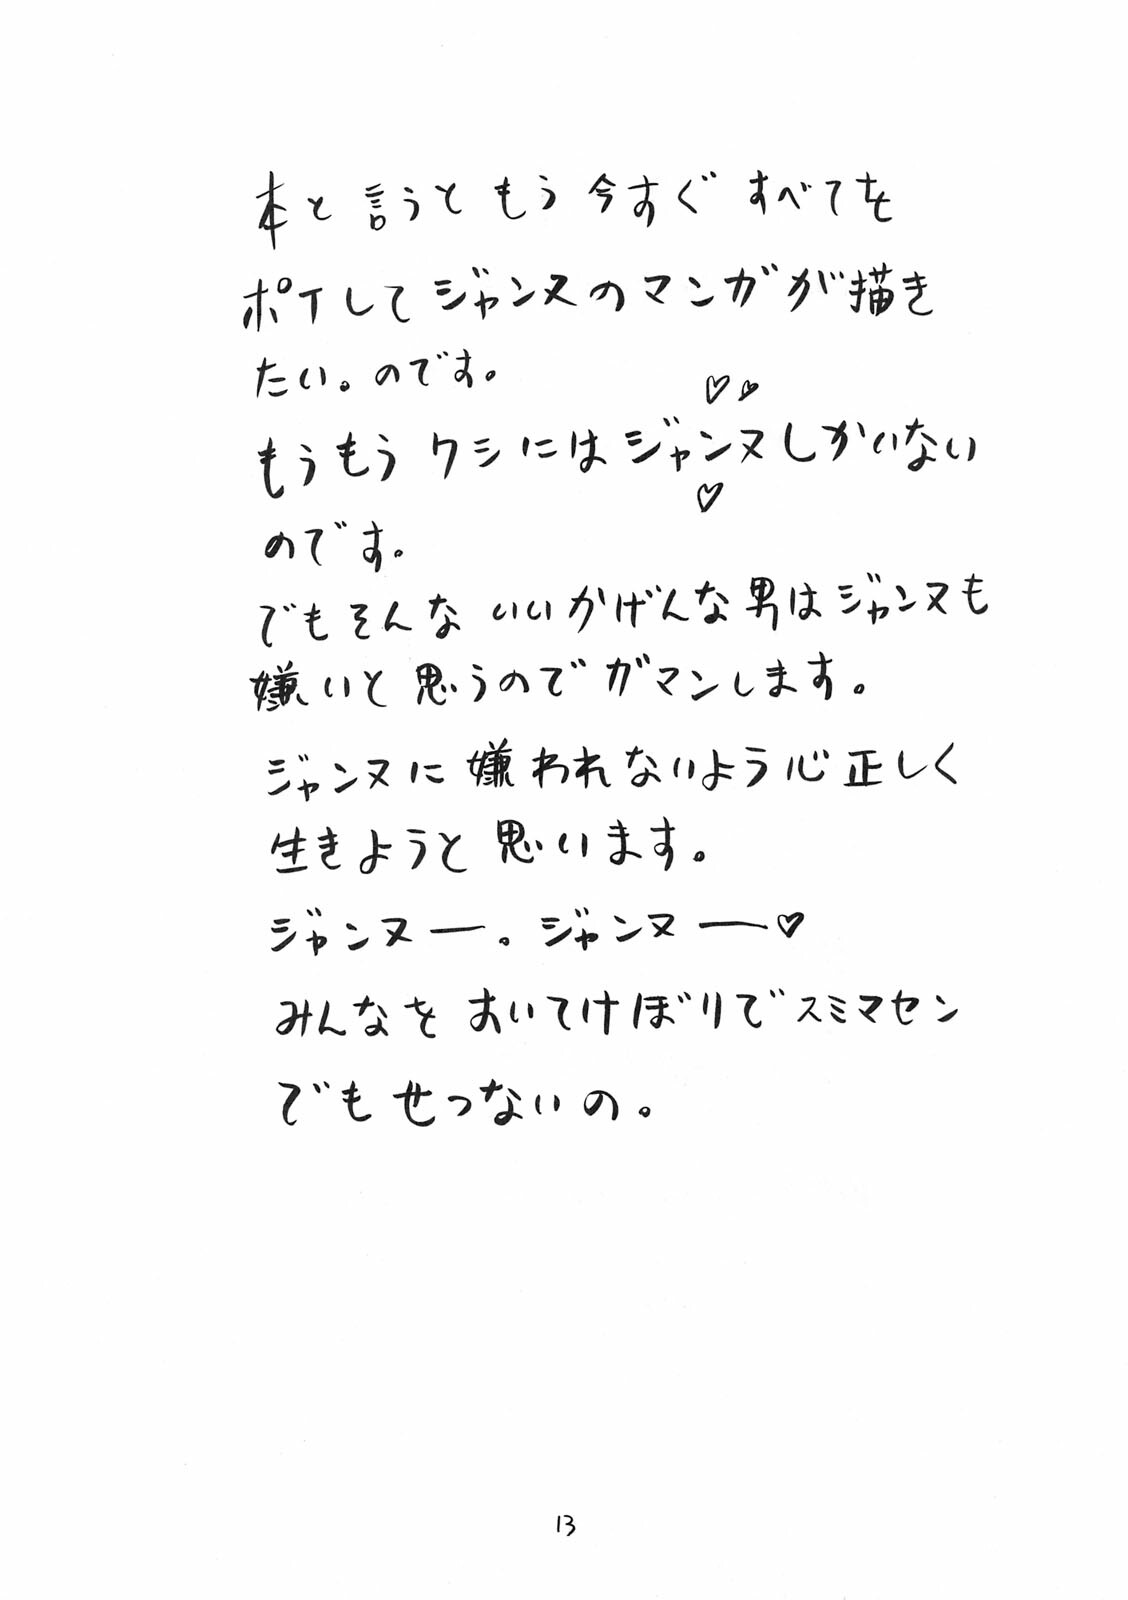 本と言うともう今すぐ すべてを
ポイしてジャンヌのマンガが描き
たい。のです。
♡♡
もうもうワシにはジャンヌしかいない
♡
のです。
でもそんな いいかげんな男はジャンヌも
嫌いと思うのでガマンします。
ジャンヌに嫌われないよう心正しく
生きようと思います。
ジャンヌー。ジャンヌー♡
みんなをおいてけぼりでスミマセン
でもせつないの。
13